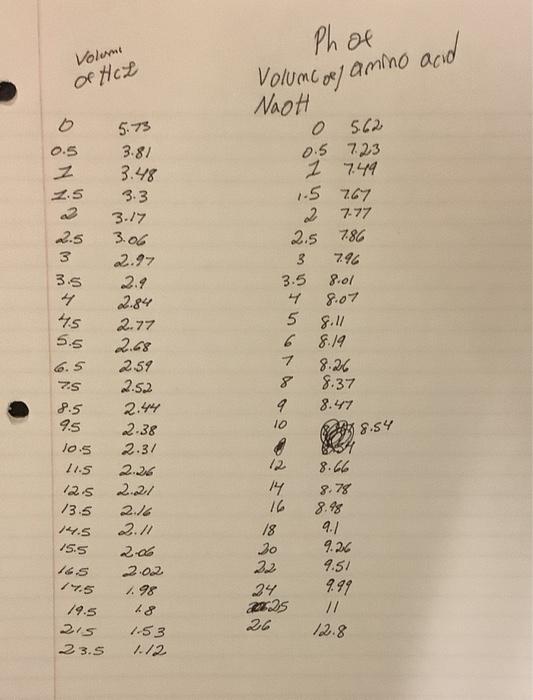 Volume of HCL
Ph of amino acid
Volume of NaOH
0 5.73
0.5 3.81
1 3.48
1.5 3.3
2 3.17
2.5 3.06
3 2.97
3.5 2.9
4 2.84
4.5 2.77
5.5 2.68
6.5 2.59
7.5 2.52
8.5 2.44
9.5 2.38
10.5 2.31
11.5 2.26
12.5 2.21
13.5 2.16
14.5 2.11
15.5 2.06
16.5 2.02
17.5 1.98
19.5 1.8
21.5 1.53
23.5 1.12
0 5.62
0.5 7.23
1 7.49
1.5 7.67
2 7.77
2.5 7.86
3 7.96
3.5 8.01
4 8.07
5 8.11
6 8.19
7 8.26
8 8.37
9 8.47
10 8.54
12 8.66
14 8.78
16 8.98
18 9.1
20 9.26
22 9.51
24 9.99
25 11
26 12.8